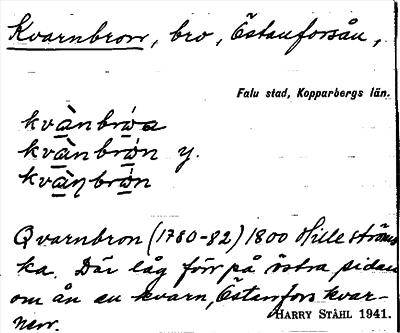 Kvarnbron, bro, Östanforsån,
Falu stad, Kopparbergs län.
kvànbróa
kvànbrón y.
kvànbrón
Qvarnbron (1780-82) 1800 Hülle
ka. Där låg förr på östra sidan
om ån en kvarn, Östanfors kvar-
nen.
HARRY STÅHL 1941.